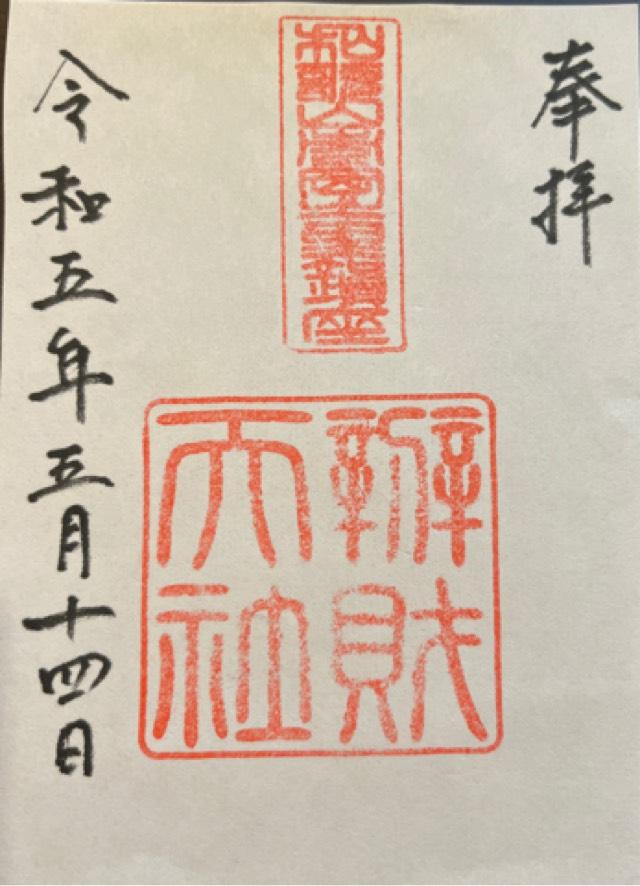 奉拝
鎮座
辨財
天社
令和五年五月十四日